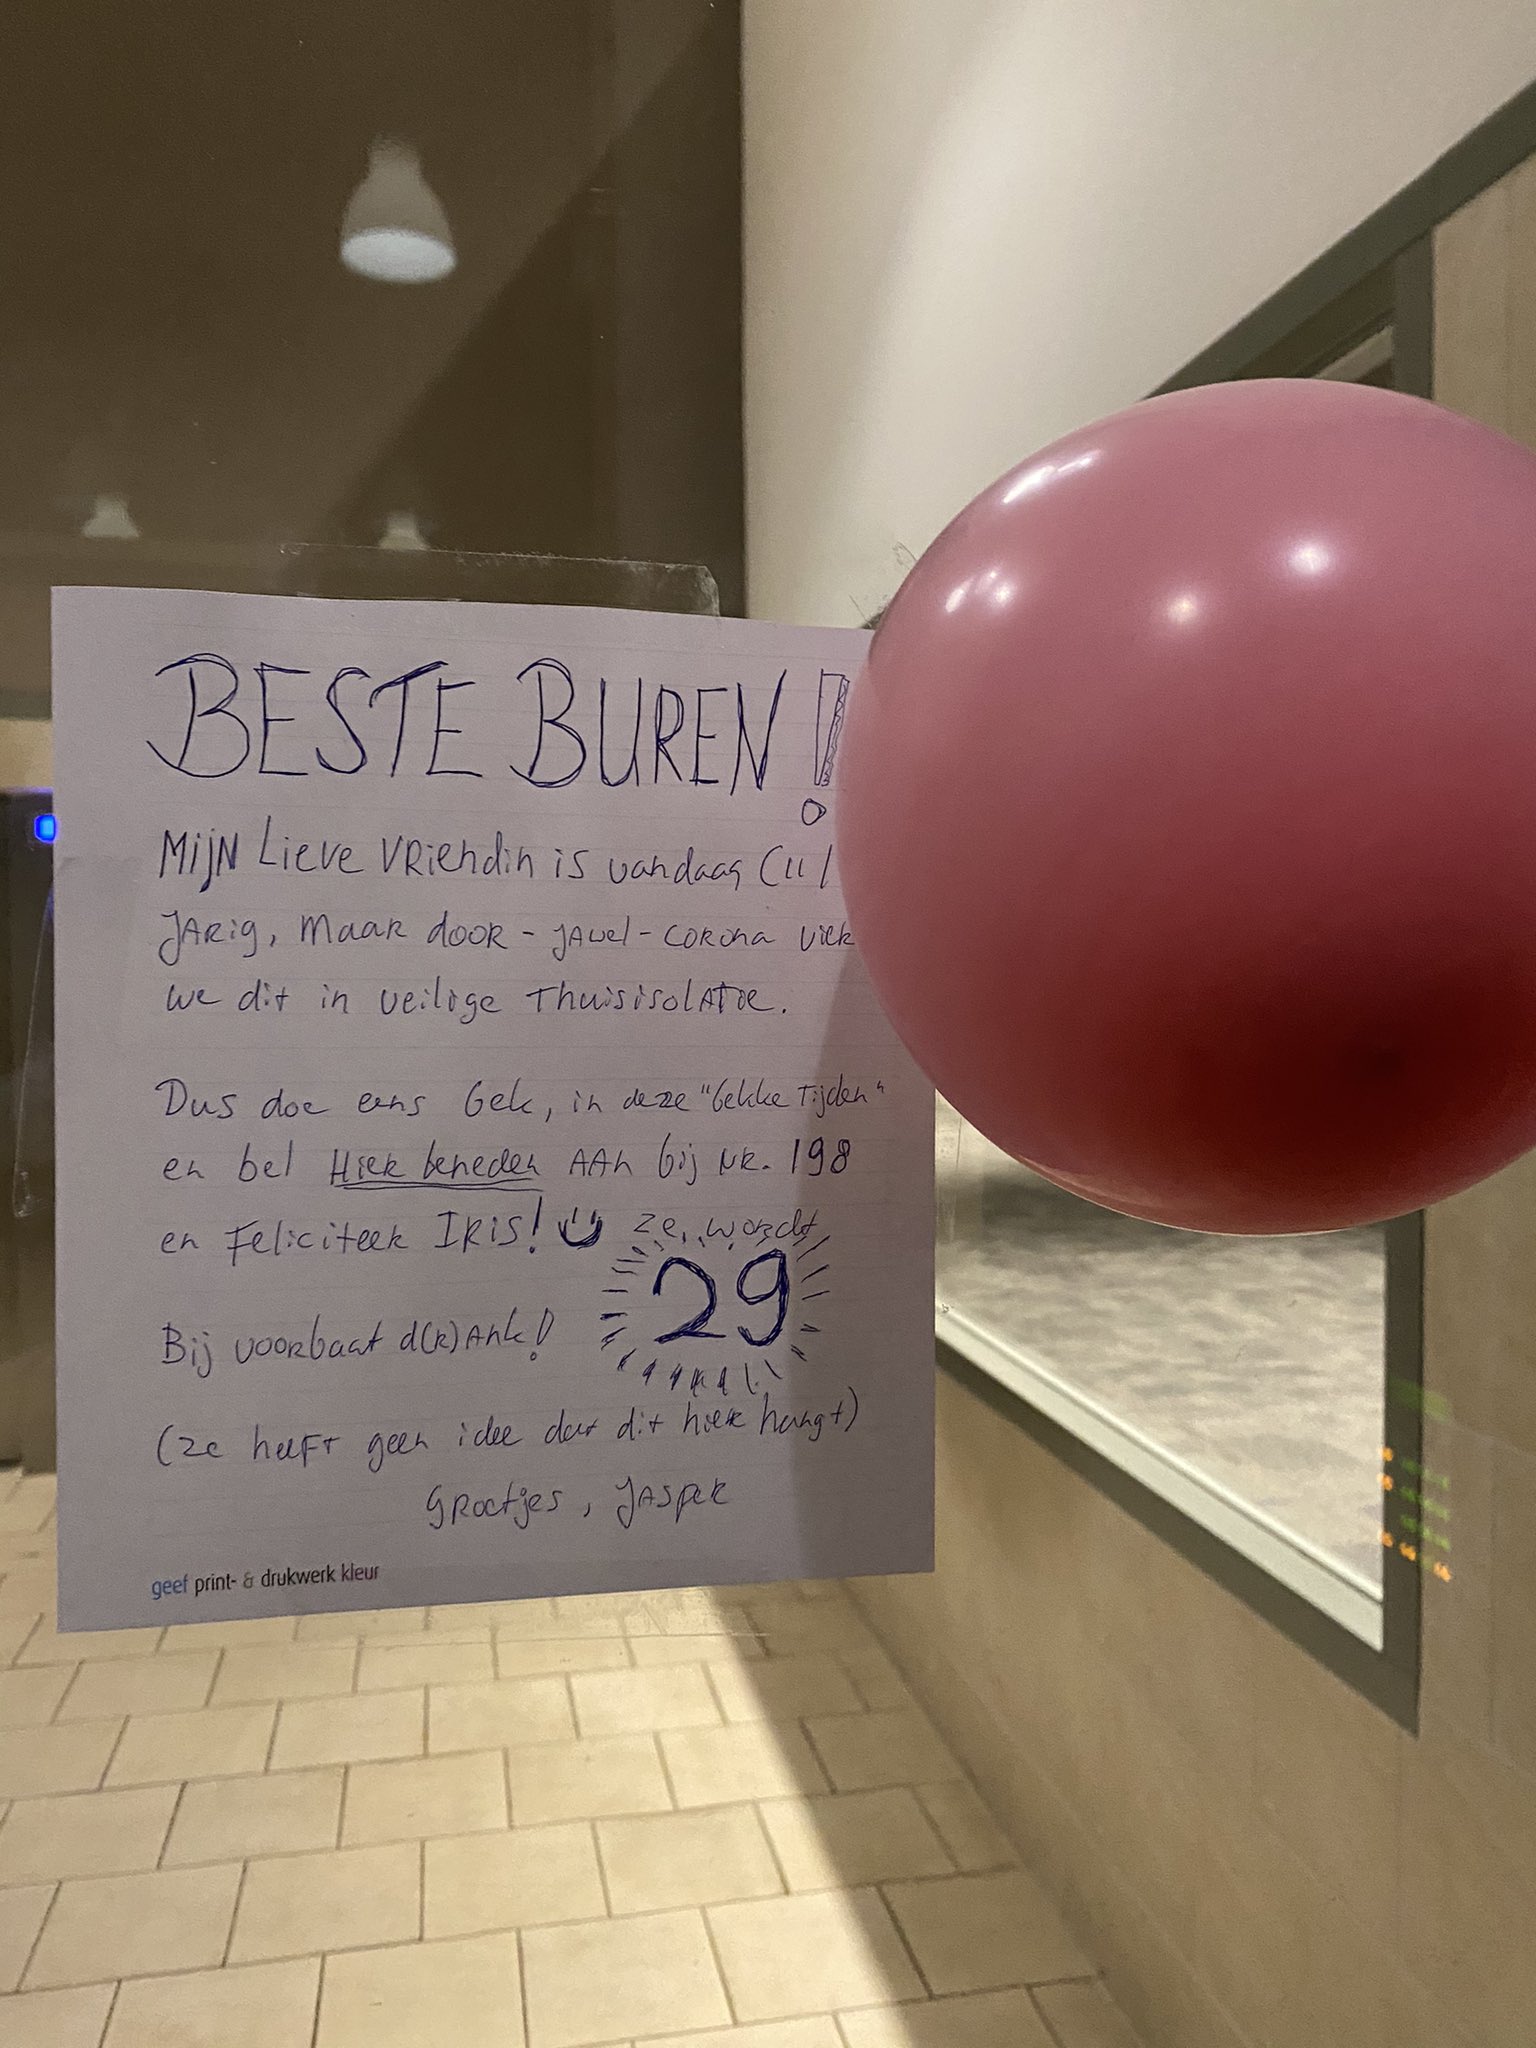 BESTE BUREN!
MijN Lieve VRiendin is vandaag (11/
JARig, MAAR door - jawel - corona vier
we dit in veilige ThuisisolATie.
Dus doe eens Gek, in deze "Gekke Tijden"
en bel Hier beneden AAn bij NR. 198
en Feliciteer IRiS! ze wordt
29
Bij voorbaat d(r)Ank!
(ze heeft geen idee dat dit hier hangt)
GRoetjes, JASPER
geef print- & drukwerk kleur